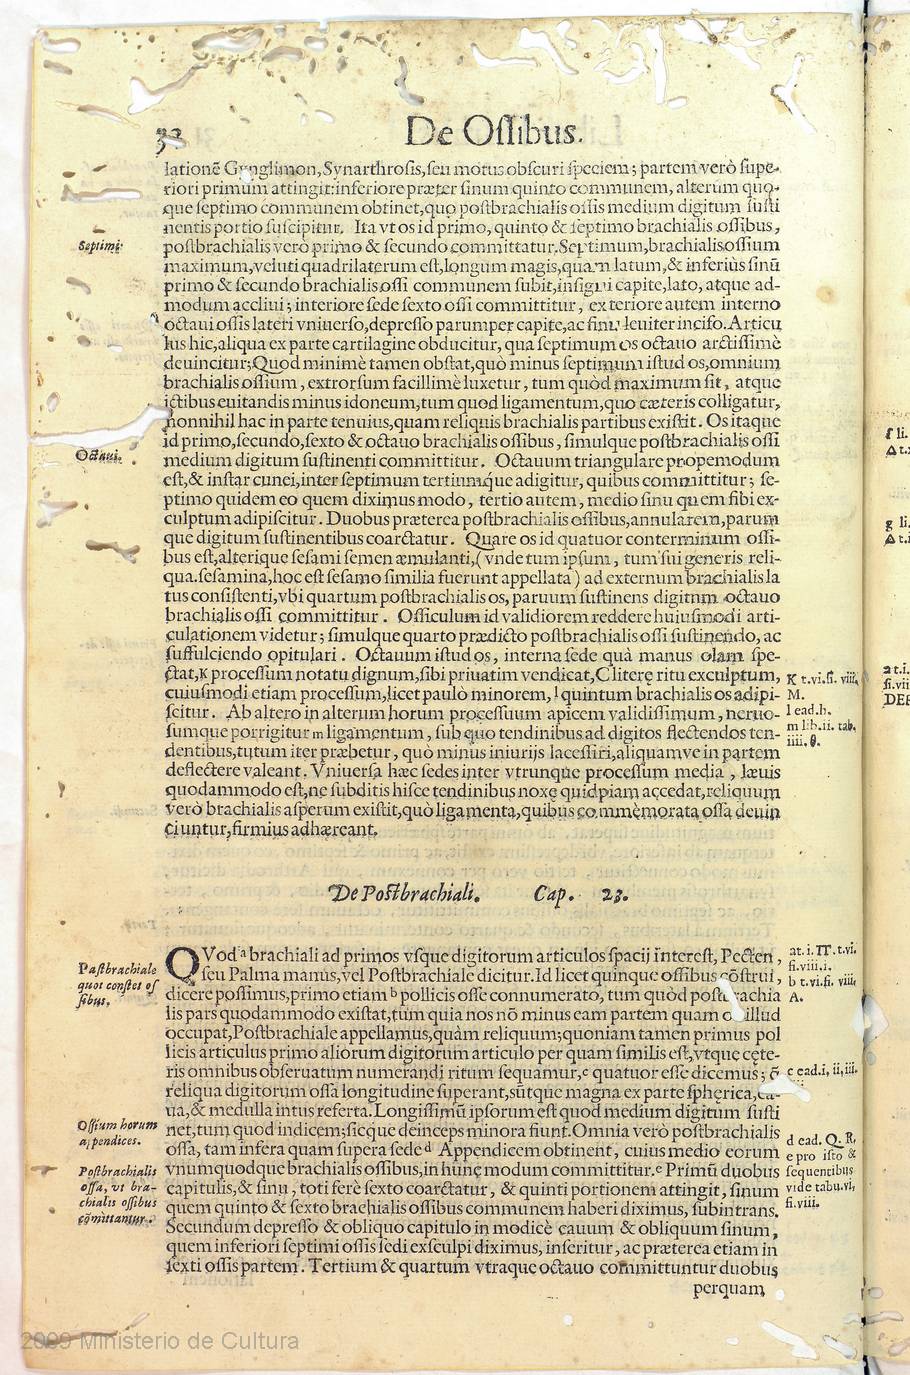 32
De Ossibus.
lationē Gynglimon, Synarthrosis, seu motus obscuri speciem; partem verò supe-
riori primum attingit: inferiore præter sinum quinto communem, alterum quo-
que septimo communem obtinet, quo postbrachialis ossis medium digitum susti
nentis portio suscipitur. Ita vt os id primo, quinto & septimo brachialis ossibus,
postbrachialis verò primo & secundo committatur. Septimum, brachialis ossium
Septimi.
maximum, veluti quadrilaterum est, longum magis, quam latum, & inferiùs sinū
primo & secundo brachialis ossi communem subit, insigni capite, lato, atque ad-
modum accliui; interiore sede sexto ossi committitur, exteriore autem interno
octaui ossis lateri vniuerso, depresso parumper capite, ac sinu leuiter inciso. Articu
lus hic, aliqua ex parte cartilagine obducitur, qua septimum os octauo arctissimè
deuincitur; Quod minimè tamen obstat, quò minus septimum istud os, omnium
brachialis ossium, extrorsum facillimè luxetur, tum quòd maximum sit, atque
ictibus euitandis minus idoneum, tum quod ligamentum, quo cæteris colligatur,
nonnihil hac in parte tenuius, quam reliquis brachialis partibus existit. Os itaque
id primo, secundo, sexto & octauo brachialis ossibus, simulque postbrachialis ossi
medium digitum sustinenti committitur. Octauum triangulare propemodum
Octaui.
est, & instar cunei, inter septimum tertiumque adigitur, quibus committitur; se-
ptimo quidem eo quem diximus modo, tertio autem, medio sinu quem sibi ex-
culptum adipiscitur. Duobus præterea postbrachialis ossibus, annularem, parum
que digitum sustinentibus coarctatur. Quare os id quatuor conterminum ossi-
bus est, alterique sesami semen æmulanti, (vnde tum ipsum, tum sui generis reli-
qua. sesamina, hoc est sesamo similia fuerunt appellata) ad externum brachialis la
tus consistenti, vbi quartum postbrachialis os, paruum sustinens digitum octauo
brachialis ossi committitur. Ossiculum id validiorem reddere huiusmodi arti-
culationem videtur; simulque quarto prædicto postbrachialis ossi sustinendo, ac
suffulciendo opitulari. Octauum istud os, interna sede quà manus olam spe-
ctat, K processum notatu dignum, sibi priuatim vendicat, C literę ritu exculptum,
cuiusmodi etiam processum, licet paulò minorem, l quintum brachialis os adipi-
scitur. Ab altero in alterum horum processuum apicem validissimum, neruo-
sumque porrigitur m ligamentum, sub quo tendinibus ad digitos flectendos ten-
dentibus, tutum iter præbetur, quò minus iniurijs lacessiri, aliquamve in partem
deflectere valeant. Vniuersa hæc sedes inter vtrunque processum media, læuis
quodammodo est, ne subditis hisce tendinibus noxę quidpiam accedat, reliquum
verò brachialis asperum existit, quò ligamenta, quibus commèmorata ossa deuin
ciuntur, firmius adhæreant.
K t.vi.fi. viii,
M.
l ead.h.
m lib.ii. tab.
iiii. θ.
De Postbrachiali. Cap. 23.
QVod a brachiali ad primos vsque digitorum articulos spacij interest, Pecten,
seu Palma manus, vel Postbrachiale dicitur. Id licet quinque ossibus cōstrui,
dicere possimus, primo etiam b pollicis osse connumerato, tum quòd postbrachia
lis pars quodammodo existat, tum quia nos nō minus eam partem quam os illud
occupat, Postbrachiale appellamus, quàm reliquum; quoniam tamen primus pol
licis articulus primo aliorum digitorum articulo per quam similis est, vtque cęte-
ris omnibus obseruatum numerandi ritum sequamur, c quatuor esse dicemus; q̄
reliqua digitorum ossa longitudine superant, sūtque magna ex parte sphęrica, ca-
ua, & medulla intus referta. Longissimū ipsorum est quod medium digitum susti
net, tum quod indicem; sicque deinceps minora fiunt. Omnia verò postbrachialis
ossa, tam infera quam supera sede d Appendicem obtinent, cuius medio eorum
vnumquodque brachialis ossibus, in hunc modum committitur. e Primū duobus
capitulis, & sinu, toti ferè sexto coarctatur, & quinti portionem attingit, sinum
quem quinto & sexto brachialis ossibus communem haberi diximus, subintrans.
Secundum depresso & obliquo capitulo in modicè cauum & obliquum sinum,
quem inferiori septimi ossis sedi exsculpi diximus, inseritur, ac præterea etiam in
sexti ossis partem. Tertium & quartum vtraque octauo committuntur duobus
perquam
Postbrachiale
quot constet os
sibus.
Ossium horum
appendices.
Postbrachialis
ossa, vt bra-
chialis ossibus
cōmittantur.
a t. i. Π. t.vi.
fi.viii.i.
b t.vi.fi. viii,
A.
c ead.i, ii, iii.
d ead. Q. R,
e pro isto &
sequentibus
vide tabu.vi,
fi.viii.
2009 Ministerio de Cultura